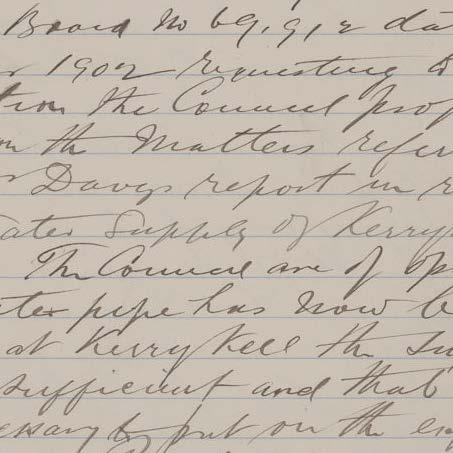 Board No 69,912 da
r 1902 requesting
from the Council prop
on the Matters refer
Davys report in r
ater Supply of Kerry
The Council are of op
ter pipe has now b
at Kerrykeel the su
sufficient and that
essary to put on the